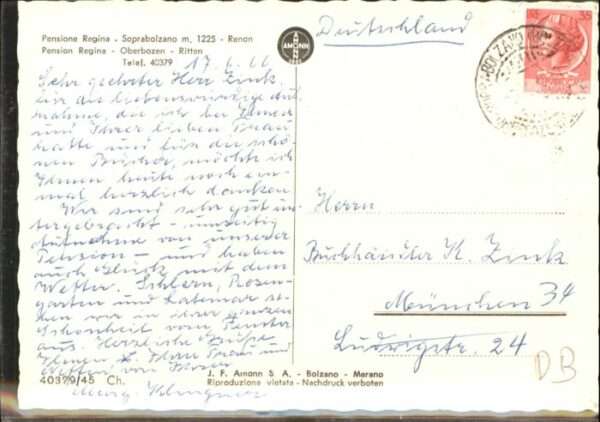 Pensione Regina - Soprabolzano m. 1225 - Renon
Pension Regina - Oberbozen - Ritten
Telef. 40379
AMONN
Deutschland
17.6.66
Sehr geehrter Herr Zink,
für die liebenswürdige Auf-
nahme, die ich bei Ihnen
und Ihrer lieben Frau
hatte und für die schö-
nen Bücher, möchte ich
Ihnen heute noch ein-
mal herzlich danken
Wir sind sehr gut un-
tergebracht -
Aufnahme von unserer
Pension - und haben
auch Glück mit dem
Wetter. Schlern, Rosen-
garten und Latemar se-
hen wir in ihrer ganzen
Schönheit vom Fenster
aus. Herzliche Grüße
Ihnen Ihrer Frau und
von Ihrer
35
BOLZANO
Herrn
Buchhändler K. Zink
München 34
Ludwigstr. 24
DB
40379/45 Ch.
J. F. Amonn S. A. - Bolzano - Merano
Riproduzione vietata - Nachdruck verboten